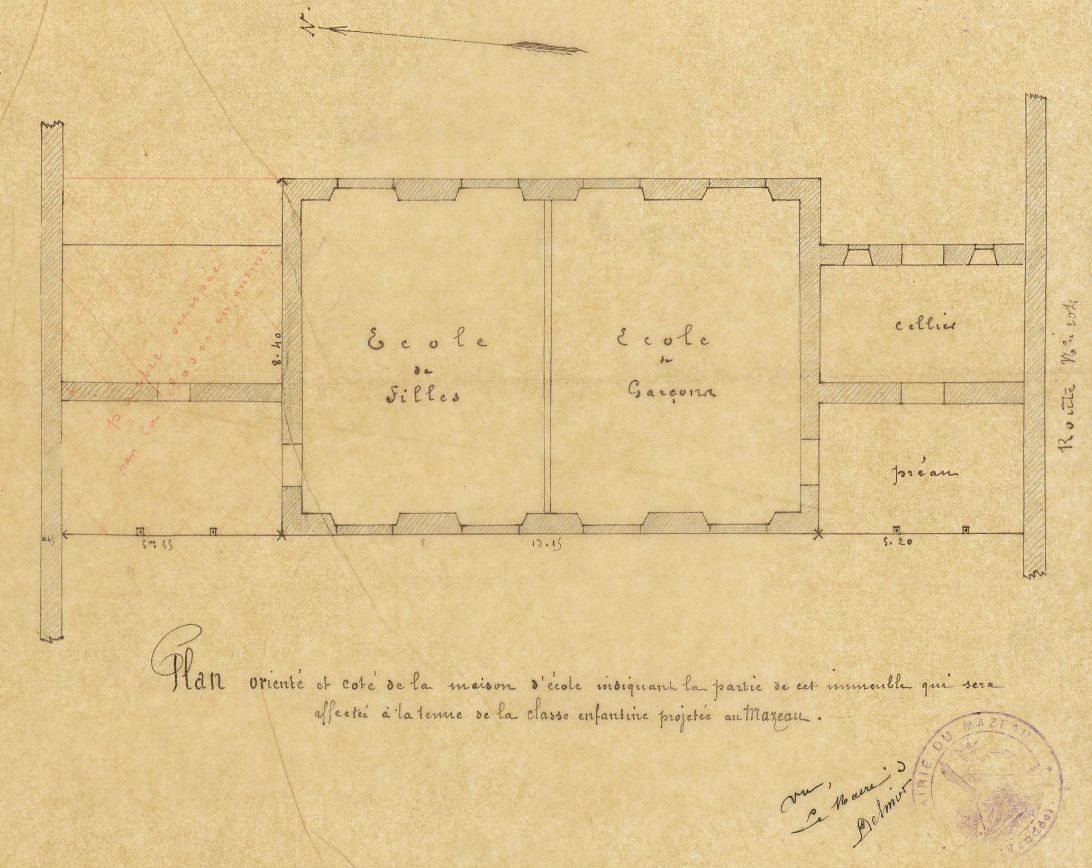 N.
partie occupée
par la classe enfantine
8.40
Ecole
de
Filles
Ecole
de
Garçons
cellier
préau
Route Nº
0.45
5m55
13.15
5.20
Plan orienté et coté de la maison d'école indiquant la partie de cet immeuble qui sera
affectée à la tenue de la classe enfantine projetée au Mazeau.
Vu,
Le Maire
MAIRIE DU MAZEAU
(Vendée)